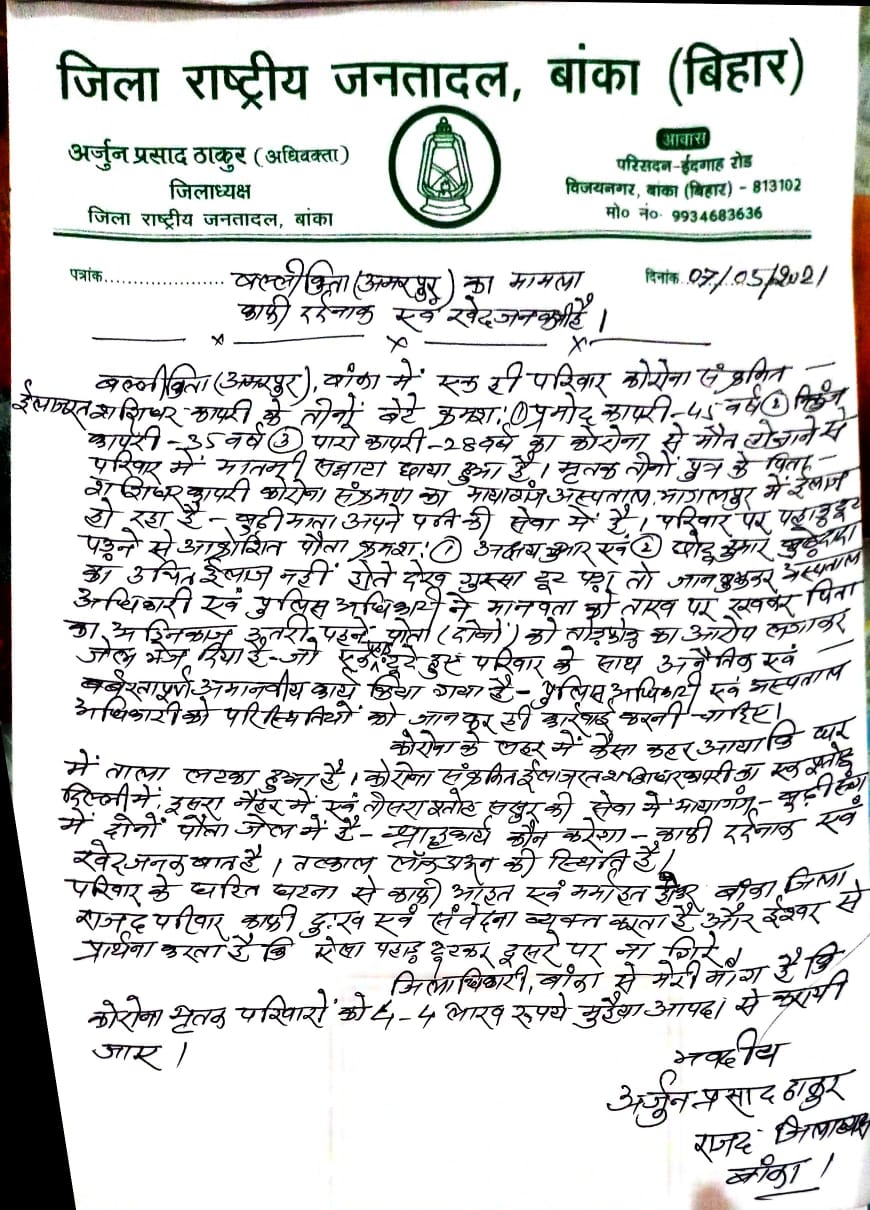 जिला राष्ट्रीय जनतादल, बांका (बिहार)
अर्जुन प्रसाद ठाकुर (अधिवक्ता)
जिलाध्यक्ष
जिला राष्ट्रीय जनतादल, बांका
आवास
परिसदन-ईदगाह रोड
विजयनगर, बांका (बिहार) - 813102
मो० नं०- 9934683636
पत्रांक.....................
दिनांक 07/05/2021
बल्लीकिता (अमरपुर) का मामला
काफी दर्दनाक एवं खेदजनक है।
बल्लीकिता (अमरपुर), बांका में एक ही परिवार कोरोना संक्रमित
ईलाजरत शशिधर कापरी के तीनों बेटे क्रमश: ① प्रमोद कापरी-45 वर्ष ②
कापरी-35 वर्ष ③ पारो कापरी-28 वर्ष का कोरोना से मौत होजाने से
परिवार में मातमी सन्नाटा छाया हुआ है। मृतक तीनों पुत्र के पिता
शशिधर कापरी कोरोना संक्रमण का मायागंज अस्पताल भागलपुर में ईलाज
हो रहा है - बुढ़ी माता अपने पति की सेवा में है। परिवार पर पहाड़ टूट
पड़ने से आक्रोशित पौता क्रमश: ① अक्षय कुमार एवं ② कुमार बुढ़े दादा
का उचित ईलाज नहीं होते देख गुस्सा टूट पड़ा तो जानबुझकर अस्पताल
अधिकारी एवं पुलिस अधिकारी ने मानवता को ताख पर रखकर पिता
का उतरी पहने पोता (दोनों) को तोड़फोड़ का आरोप लगाकर
जेल भेज दिया है - जो टूटे हुए परिवार के साथ अनैतिक एवं
बर्बरतापूर्ण अमानवीय कार्य किया गया है - पुलिस अधिकारी एवं अस्पताल
अधिकारी को परिस्थितियों को जानकर ही कार्रवाई करनी चाहिए।
कोरोना के लहर में कैसा कहर आया कि घर
में ताला लटका हुआ है। कोरोना संक्रमित ईलाजरत शशिधर कापरी का एक
दिल्ली में, दुसरा नैहर में एवं तीसरा ससुर की सेवा में मायागंज - बुढ़ी
में दोनों पौता जेल में है - कौन करेगा - काफी दर्दनाक एवं
खेदजनक बात है। तत्काल लॉकडाउन की स्थिति है।
परिवार के घटित घटना से काफी आहत एवं मर्माहत होकर बांका जिला
राजद परिवार काफी दु:ख एवं संवेदना व्यक्त करता है और ईश्वर से
प्रार्थना करता है कि ऐसा पहाड़ टूटकर दूसरे पर ना गिरे।
जिलाधिकारी, बांका से मेरी माँग है कि
कोरोना मृतक परिवारों को 4-4 लाख रूपये मुहैया आपदा से करायी
जाए।
भवदीय
अर्जुन प्रसाद ठाकुर
राजद जिलाध्यक्ष
बांका।